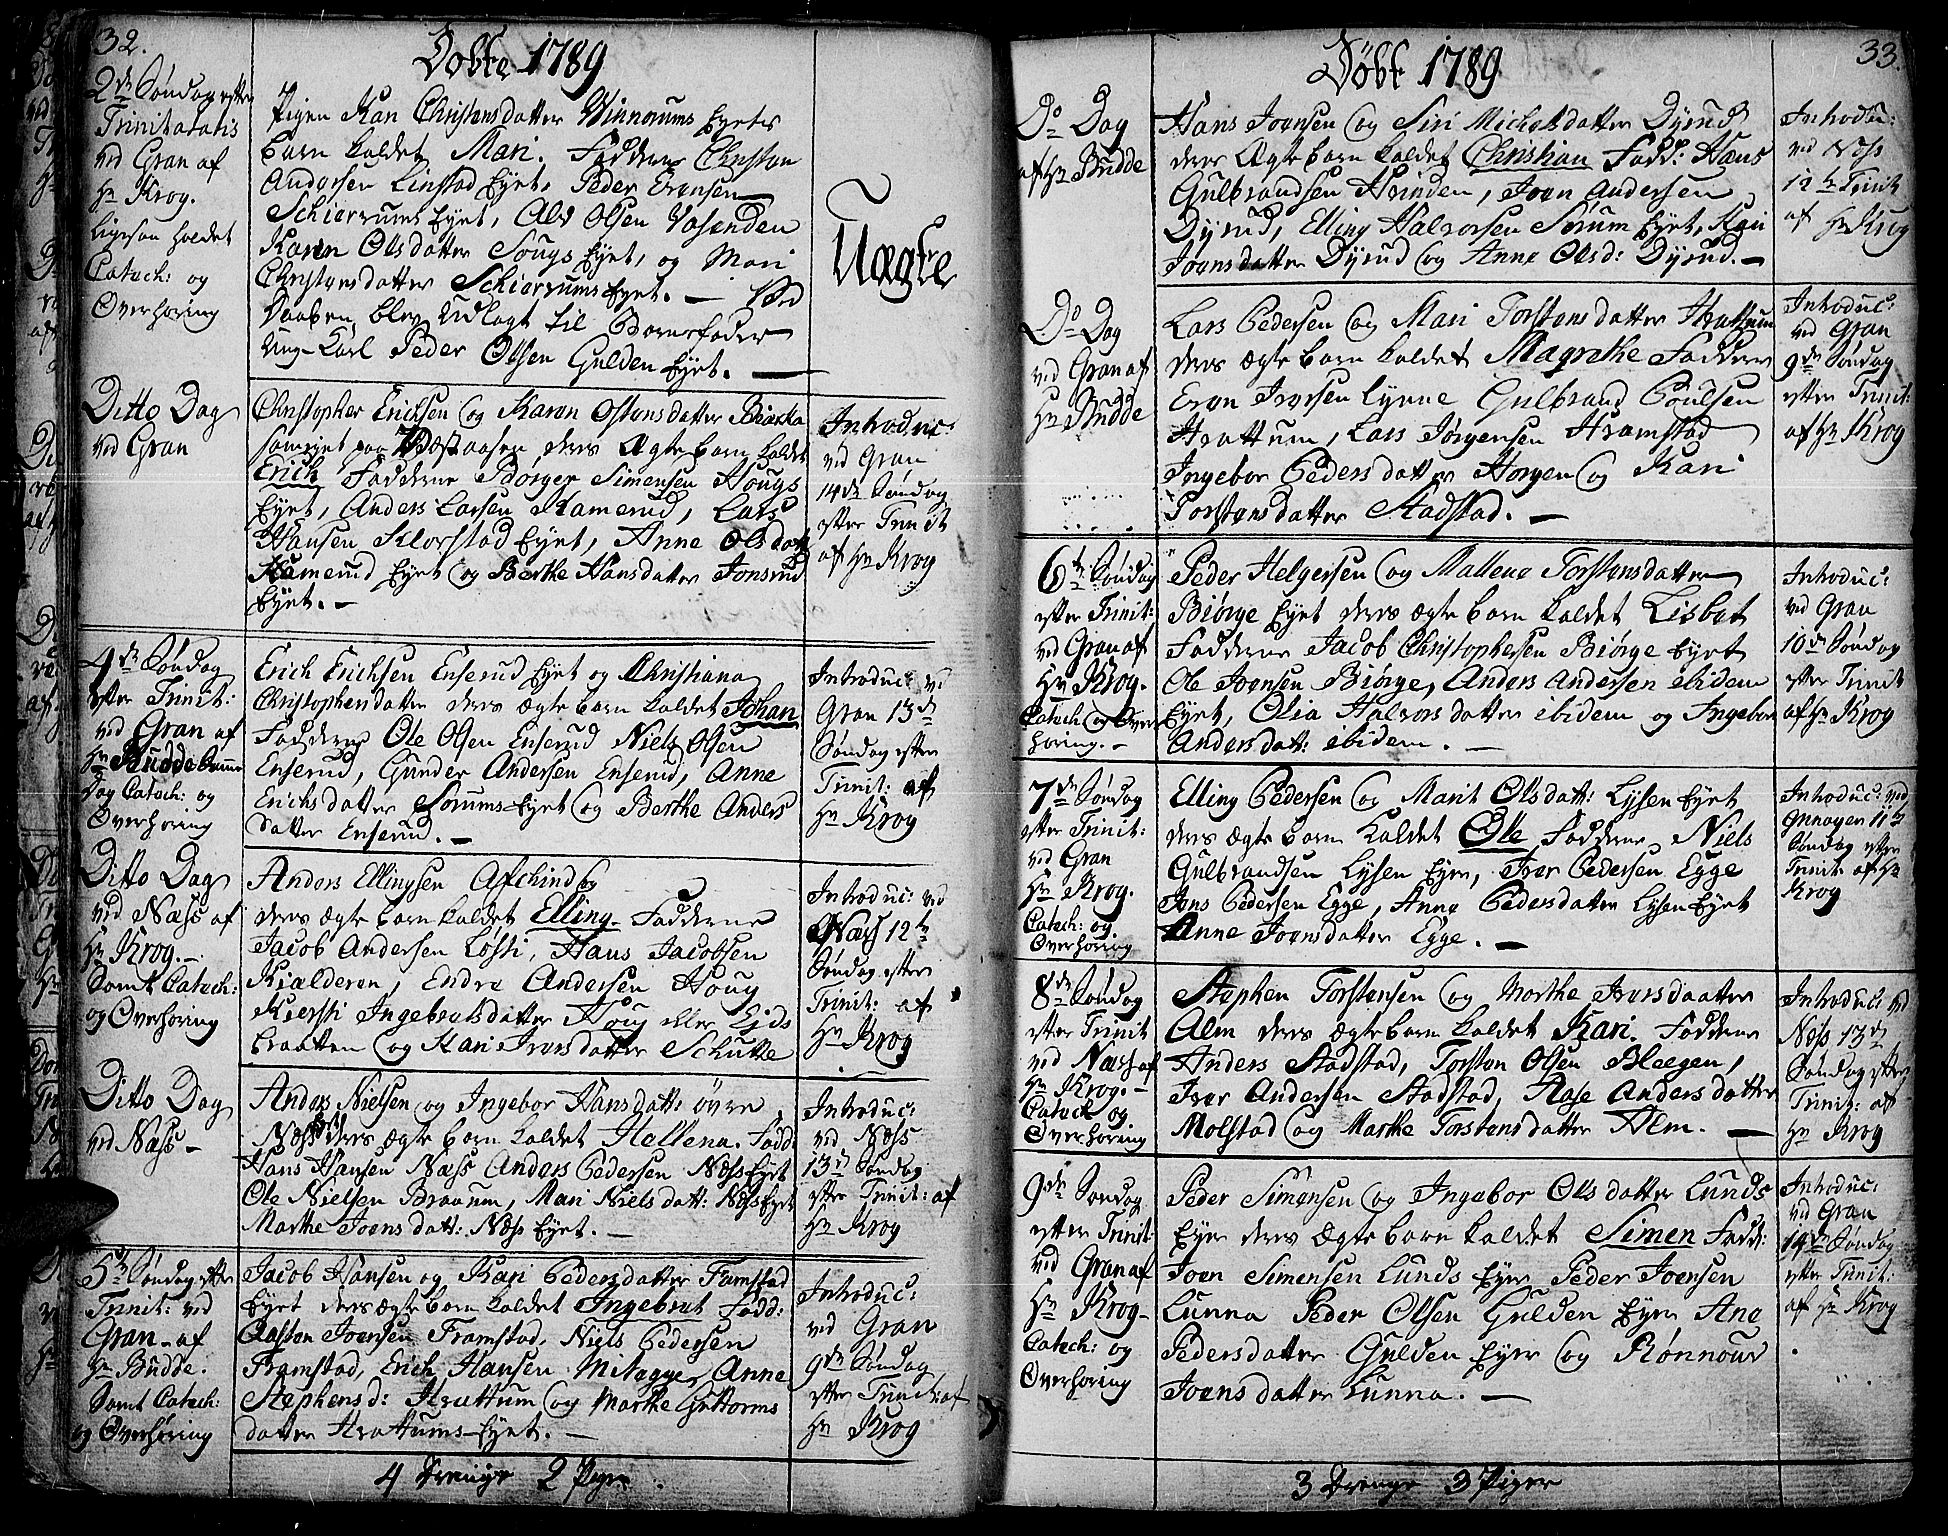 32.
Døbte 1789
2de Søndag efter
Trinitatis
ved Gran af
Hr Krog.
ligesaa holdet
Catech: og
Overhøring
Pigen Kari Christensdatter Winnorums Eyets
barn kaldet Mari. Faddere Christen
Andersen Linstad Eyet, Peder Evensen
Schierrums Eyet, Alv Olsen Vasenden
Karen Olsdatter Hougs Eyet, og Mari
Christensdatter Schierrums Eyet. — Ved
Daaben blev Udlagt til Barnefader
Ung-Karl Peder Olsen Gulden Eyet. —
Uægte
Ditto Dag
ved Gran
Christopher Erichsen og Karen Ostensdatter
paa deres Ægte barn kaldet
Erich Faddere Børger Simensen Hougs
Eyet, Anders Larsen Hamerud, Lars
Hansen Klorstad Eyet, Anne Olsdatt
Hamerud Eyet og Berthe Hansdatter Jonsrud
Eyet. —
Introduc:
ved Gran
14de Søndag
efter Trinit
af Hr Krog
4de Søndag
efter Trinit:
ved Gran af
Hr Budde
Dag Catech: og
Overhøring
Erich Erichsen Enserud Eyet og Christiana
Christophersdatter deres Ægte barn kaldet Johan
Faddere Ole Olsen Enserud Niels Olsen
Enserud, Gunder Andersen Enserud, Anne
Erichsdatter Sørums Eyet og Berthe Anders
datter Enserud. —
Introduc: vd
Gran 13de
Søndag efter
Trinit: af
Hr Krog
Ditto Dag
ved Næss af
Hr Krog. —
Samt Catech:
og Overhøring
Anders Ellingsen og
deres ægte barn kaldet Elling. Faddere
Jacob Andersen Lossi, Hans Jacobsen
Kielderen, Endre Andersen Houg
Kiersti Ingebretsdatter Houg eller Ejds
braatten og Kari Iversdatter Schutte
Introduc: vd
Næss 12te
Søndag efter
Trinit: af
Hr Krog
Ditto Dag
ved Næss —
Anders Nielsen og Ingebor Hansdatt: øvre
Næss deres ægte barn kaldet Hallena. Fadd:
Hans Hansen Næss Anders Pedersen Næss Eyet
Ole Nielsen Braaum, Mari Nielsdatt: Næss Eyet
Marthe Joensdatt: Næss Eyet. —
Introduc:
ved Næss
13de Søndag
efter Trinit: af
Hr Krog
5te Søndag efter
Trinit: ved
Gran af
Hr Budde.
Samt Catech:
og Overhøring
Jacob Hansen og Kari Pedersdatter Framstad
Eyet deres ægte barn kaldet Ingebret Fadd:
Joensen Framstad, Niels Pedersen
Framstad, Erich Hansen Anne
Stephensd: Hvattum og Marthe Guttorms
datter Hvattums Eyet. —
Introduc:
ved Gran
9de Søndag
efter Trinit: af
Hr Krog
4 Drenge 2 Piger.
33.
Døbt 1789
Do Dag
af Hr Budde
Hans Joensen og Siri Michelsdatter Dyrud
deres Ægte barn kaldet Christian Fadd: Hans
Gulbrandsen Hvinden, Joen Andersen
Dyrud, Elling Halvorsen Sørum Eyet, Kari
Joensdatter Dyrud og Anne Olsd: Dyrud. —
Introduc:
ved Næss
12te Trinit
af Hr Krog
Do Dag
ved Gran af
Hr Budde
Lars Pedersen og Mari Torstensdatter Hvattum
deres ægte barn kaldet Magrethe Faddere
Even Iversen Lynne Gulbrand Poulsen
Hvattum, Lars Jørgensen Framstad
Ingebor Pedersdatter Horgen og Kari
Torstensdatter Stadstad. —
Introduc:
ved Gran
9de Søndag
efter Trinit:
af Hr Krog
6te Søndag
efter Trinit:
ved Gran af
Hr Krog.
Catech og Over
høring. —
Peder Helgersen og Mallena Torstensdatter
Biørge Eyet deres ægte barn kaldet Lisbet
Faddere Jacob Christophersen Biørge Eyet
Ole Joensen Biørge, Anders Andersen ibidem
Eyet, Olia Halvorsdatter ibidem og Ingebor
Andersdatt: ibidem. —
Introduc:
ved Gran
10de Søndag
efter Trinit
af Hr Krog
7de Søndag
efter Trinit:
ved Gran
Hr Krog.
Catech: og
Overhøring
Elling Pedersen og Marit Olsdatt: Lysen Eyet
deres ægte barn kaldet Ole Faddere Niels
Gulbrandsen Lysen Eyer, Iver Pedersen Egge
Jens Pedersen Egge, Anne Pedersdatter Lysen Eyet
Anne Joensdatter Egge. —
Introduc: ved
11te
Søndag efter
Trinit: af Hr
Krog
8de Søndag
efter Trinit
ved Næss af
Hr Krog. —
Catech og
Overhøring
Stephen Torstensen og Marthe Iversdaatter
Alm deres ægte barn kaldet Kari. Faddere
Anders Stadstad, Torsten Olsen Bleegen,
Iver Andersen Stadstad, Aase Andersdatter
Molstad og Marthe Torstensdatter Alm. —
Introduc: vd
Næss 13de
Søndag efter
Trinit: af
Hr Krog
9de Søndag
efter Trinit:
ved Gran af
Hr Krog —
Catech: og
Overhøring
Peder Simensen og Ingebor Olsdatter Lunds
Eyer deres ægte barn kaldet Simen Fadd:
Joen Simensen Lunds Eyer Peder Joensen
Lunna Peder Olsen Gulden Eyer Ane
Pedersdatter Gulden Eyer og Rønnour
Joensdatter Lunna. —
Introduc:
ved Gran
14de Søndag
efter Trinit:
af Hr Krog
3 Drenge 3 Piger